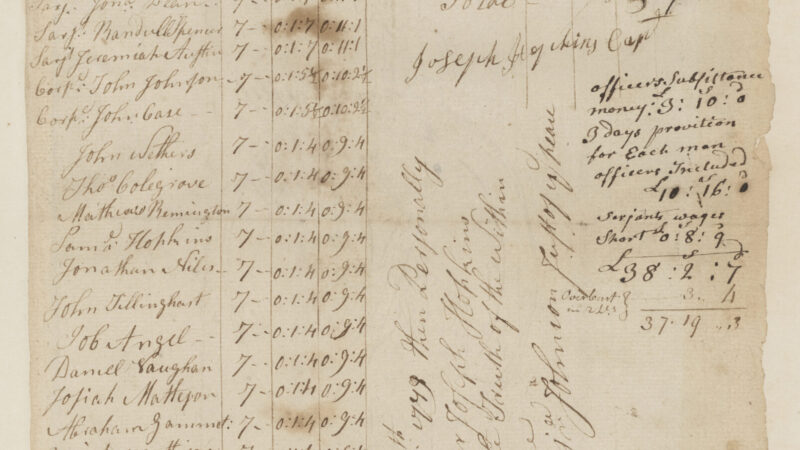 Serj.t Jona. Dean
Serj.t Randull Spencer 7 - 0:1:7 0:11:1
Serj.t Jeremiah Austin 7 - 0:1:7 0:11:1
Corp.l John Johnson 7 - 0:1:5½ 0:10:2½
Corp.l John Case 7 - 0:1:5½ 0:10:2½
John Wethers 7 - 0:1:4 0:9:4
Tho.s Colegrove 7 - 0:1:4 0:9:4
Mathew Remington 7 - 0:1:4 0:9:4
Sam.l Hopkins 7 - 0:1:4 0:9:4
Jonathan Niles 7 - 0:1:4 0:9:4
John Tillinghast 7 - 0:1:4 0:9:4
Job Angel 7 - 0:1:4 0:9:4
Daniel Vaughan 7 - 0:1:4 0:9:4
Josiah Matteson 7 - 0:1:4 0:9:4
Abraham Gammet: 7 - 0:1:4 0:9:4
Total
Joseph Hopkins Cap.t
officers Subsistance
money: £3: 10: 0
3 days provition
for Each man
officers Included
£10: 16: 0
Serjants wages
Short 0: 8: 9
£38: 2: 7
3. 4
37: 19 .. 3
1749 then Personally
Joseph Hopkins
Truth of the within
Johnson Just of peace